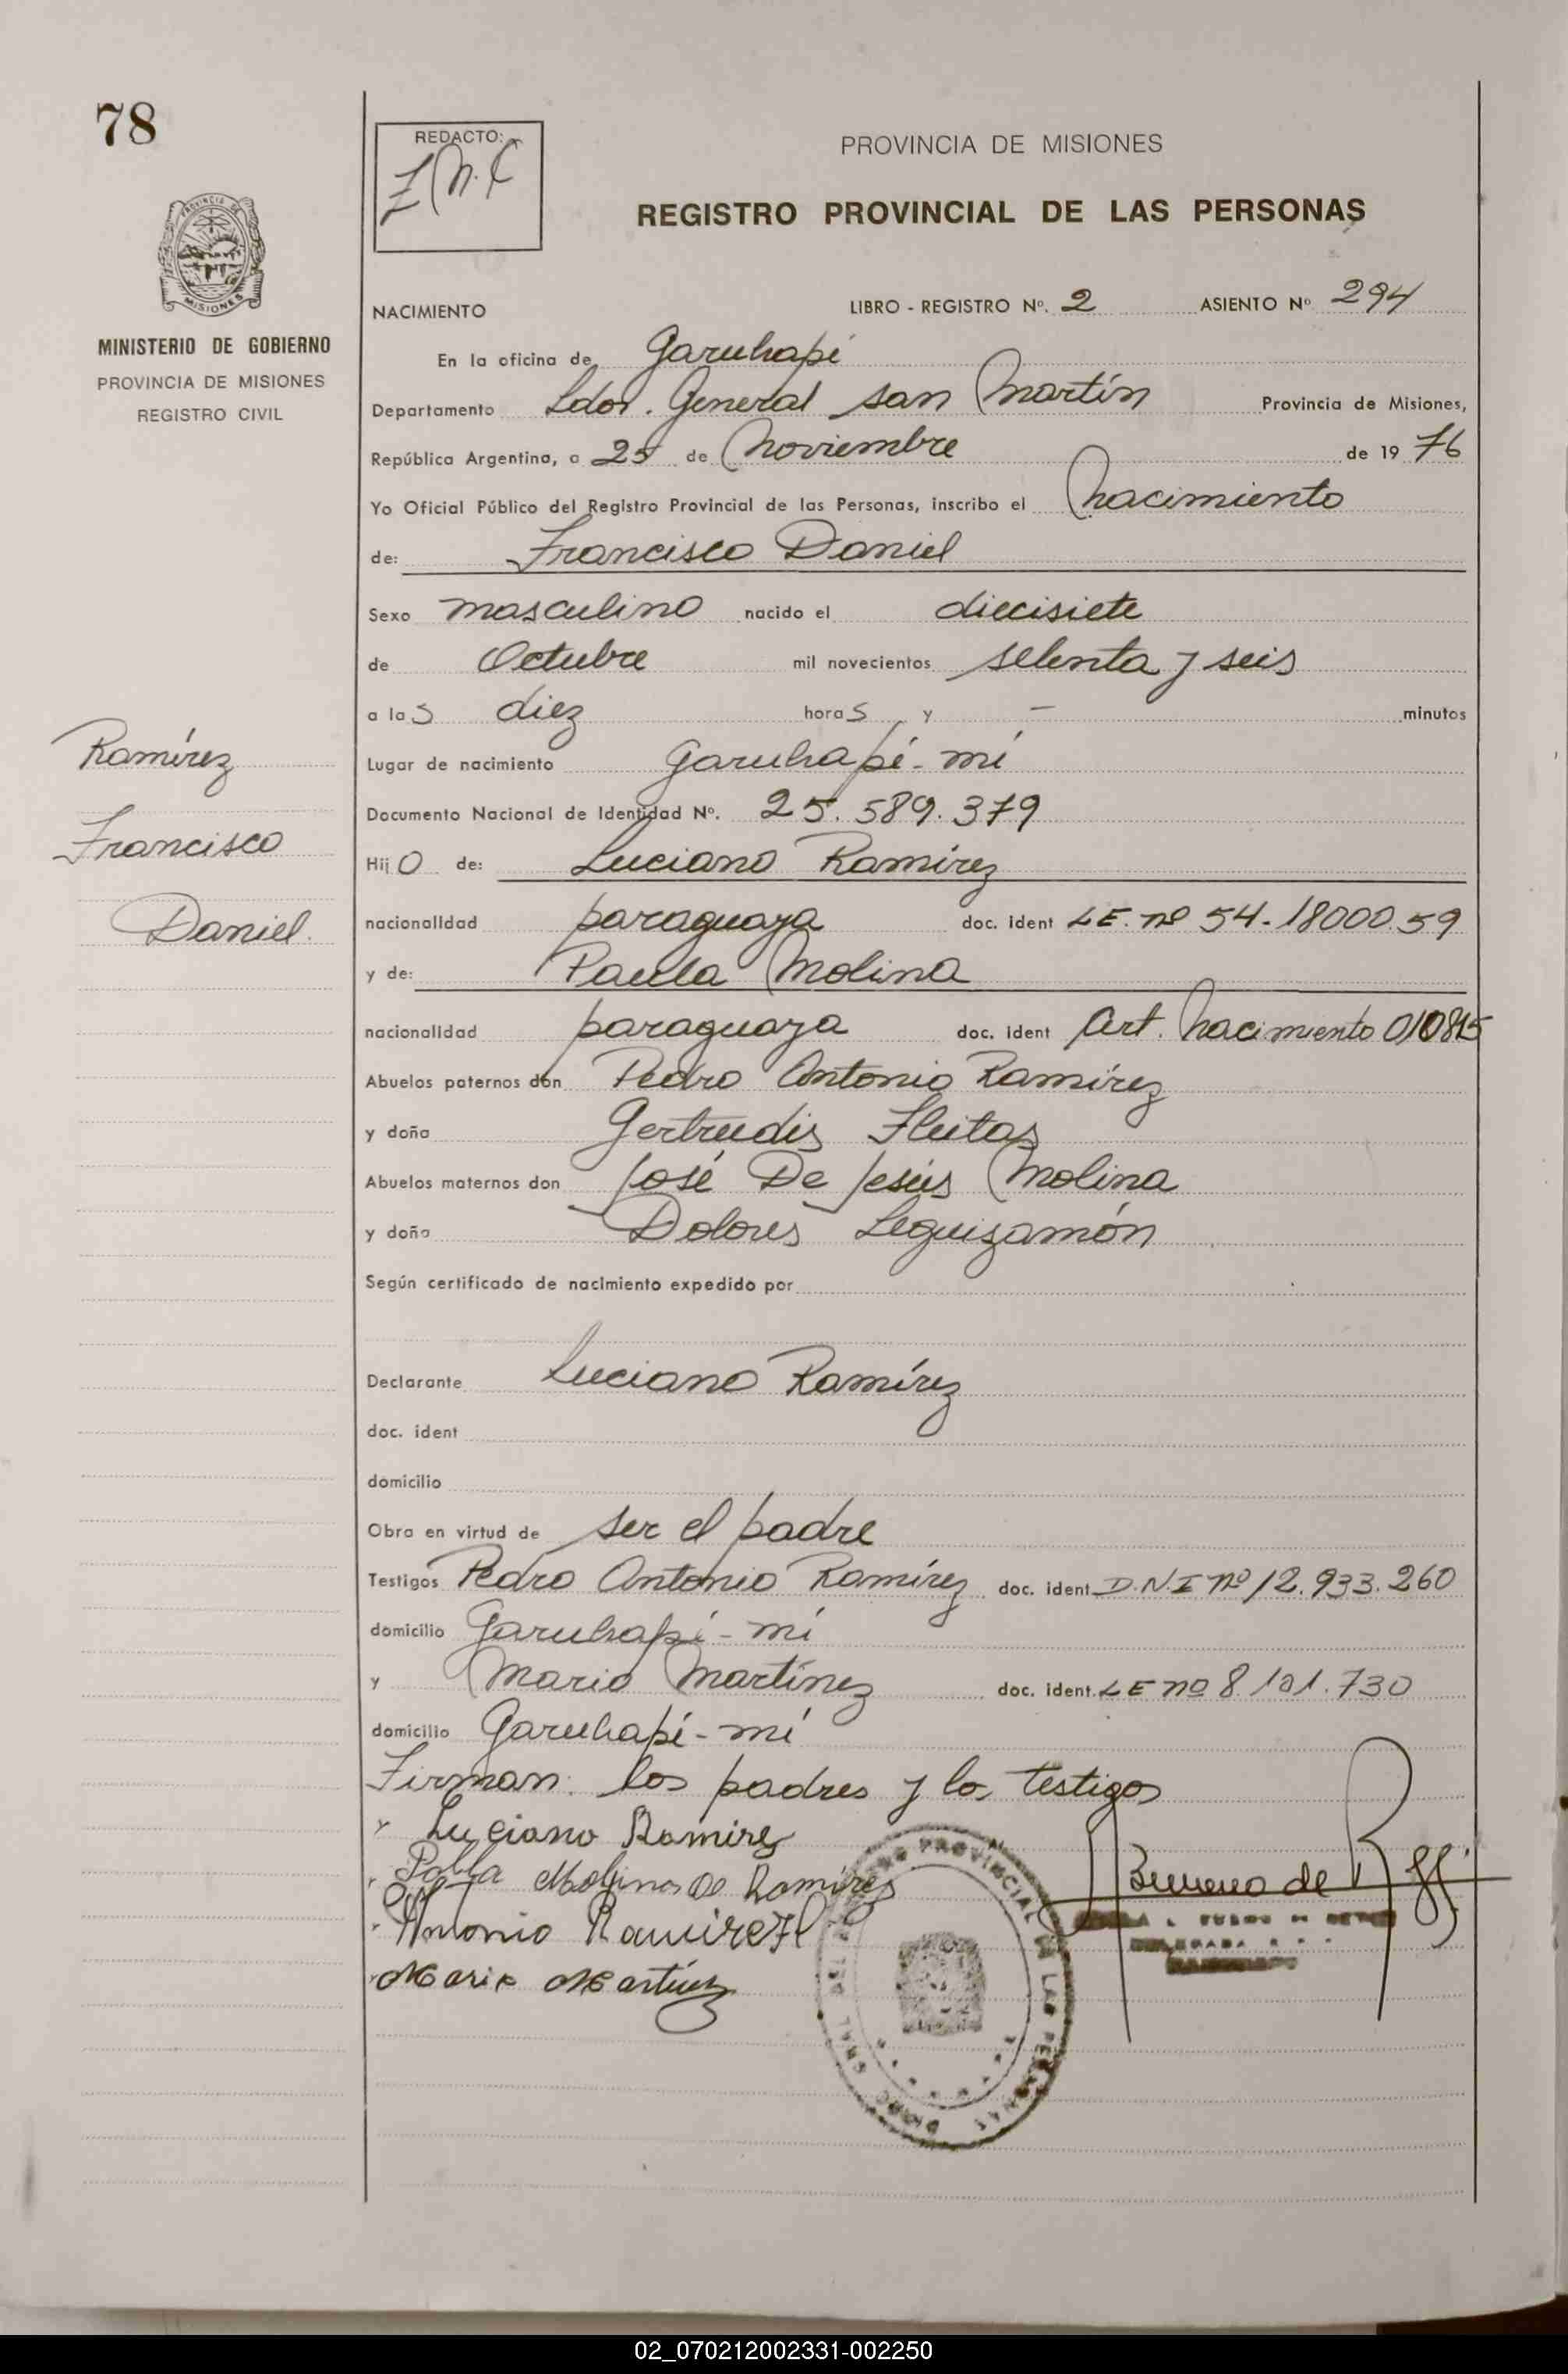 78
REDACTO:
PROVINCIA DE MISIONES
REGISTRO PROVINCIAL DE LAS PERSONAS
PROVINCIA DE MISIONES
NACIMIENTO LIBRO - REGISTRO Nº. 2 ASIENTO Nº 294
MINISTERIO DE GOBIERNO
PROVINCIA DE MISIONES
REGISTRO CIVIL
En la oficina de Garuhapí
Departamento Ldor. General San Martín Provincia de Misiones,
República Argentina, a 25 de Noviembre de 1976
Yo Oficial Público del Registro Provincial de las Personas, inscribo el nacimiento
de: Francisco Daniel
Sexo masculino nacido el diecisiete
de Octubre mil novecientos setenta y seis
a las diez horas y — minutos
Ramírez
Francisco
Daniel.
Lugar de nacimiento Garuhapí-mí
Documento Nacional de Identidad Nº. 25.589.379
Hijo de: Luciano Ramírez
nacionalidad paraguaya doc. ident LE. nº 54-18000.59
y de: Paula Molina
nacionalidad paraguaya doc. ident Art. Nacimiento
Abuelos paternos don Pedro Antonio Ramírez
y doña Gertrudis Fleitas
Abuelos maternos don José De Jesús Molina
y doña Dolores Leguizamón
Según certificado de nacimiento expedido por
Declarante Luciano Ramírez
doc. ident
domicilio
Obra en virtud de ser el padre
Testigos Pedro Antonio Ramírez doc. ident D.N.I nº 12.933.260
domicilio Garuhapí-mí
y Mario Martínez doc. ident. LE nº 8.101.730
domicilio Garuhapí-mí
Firman: los padres y los testigos
Luciano Ramirez
Molina de Ramirez
Antonio Ramirez
Mario Martinez
PROVINCIAL DE LAS PERSONAS
02_070212002331-002250